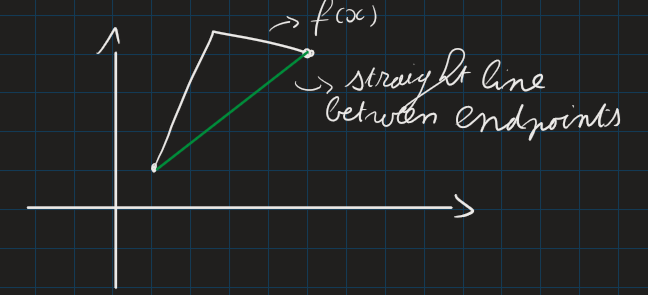 f(x)
straight line
between endpoints